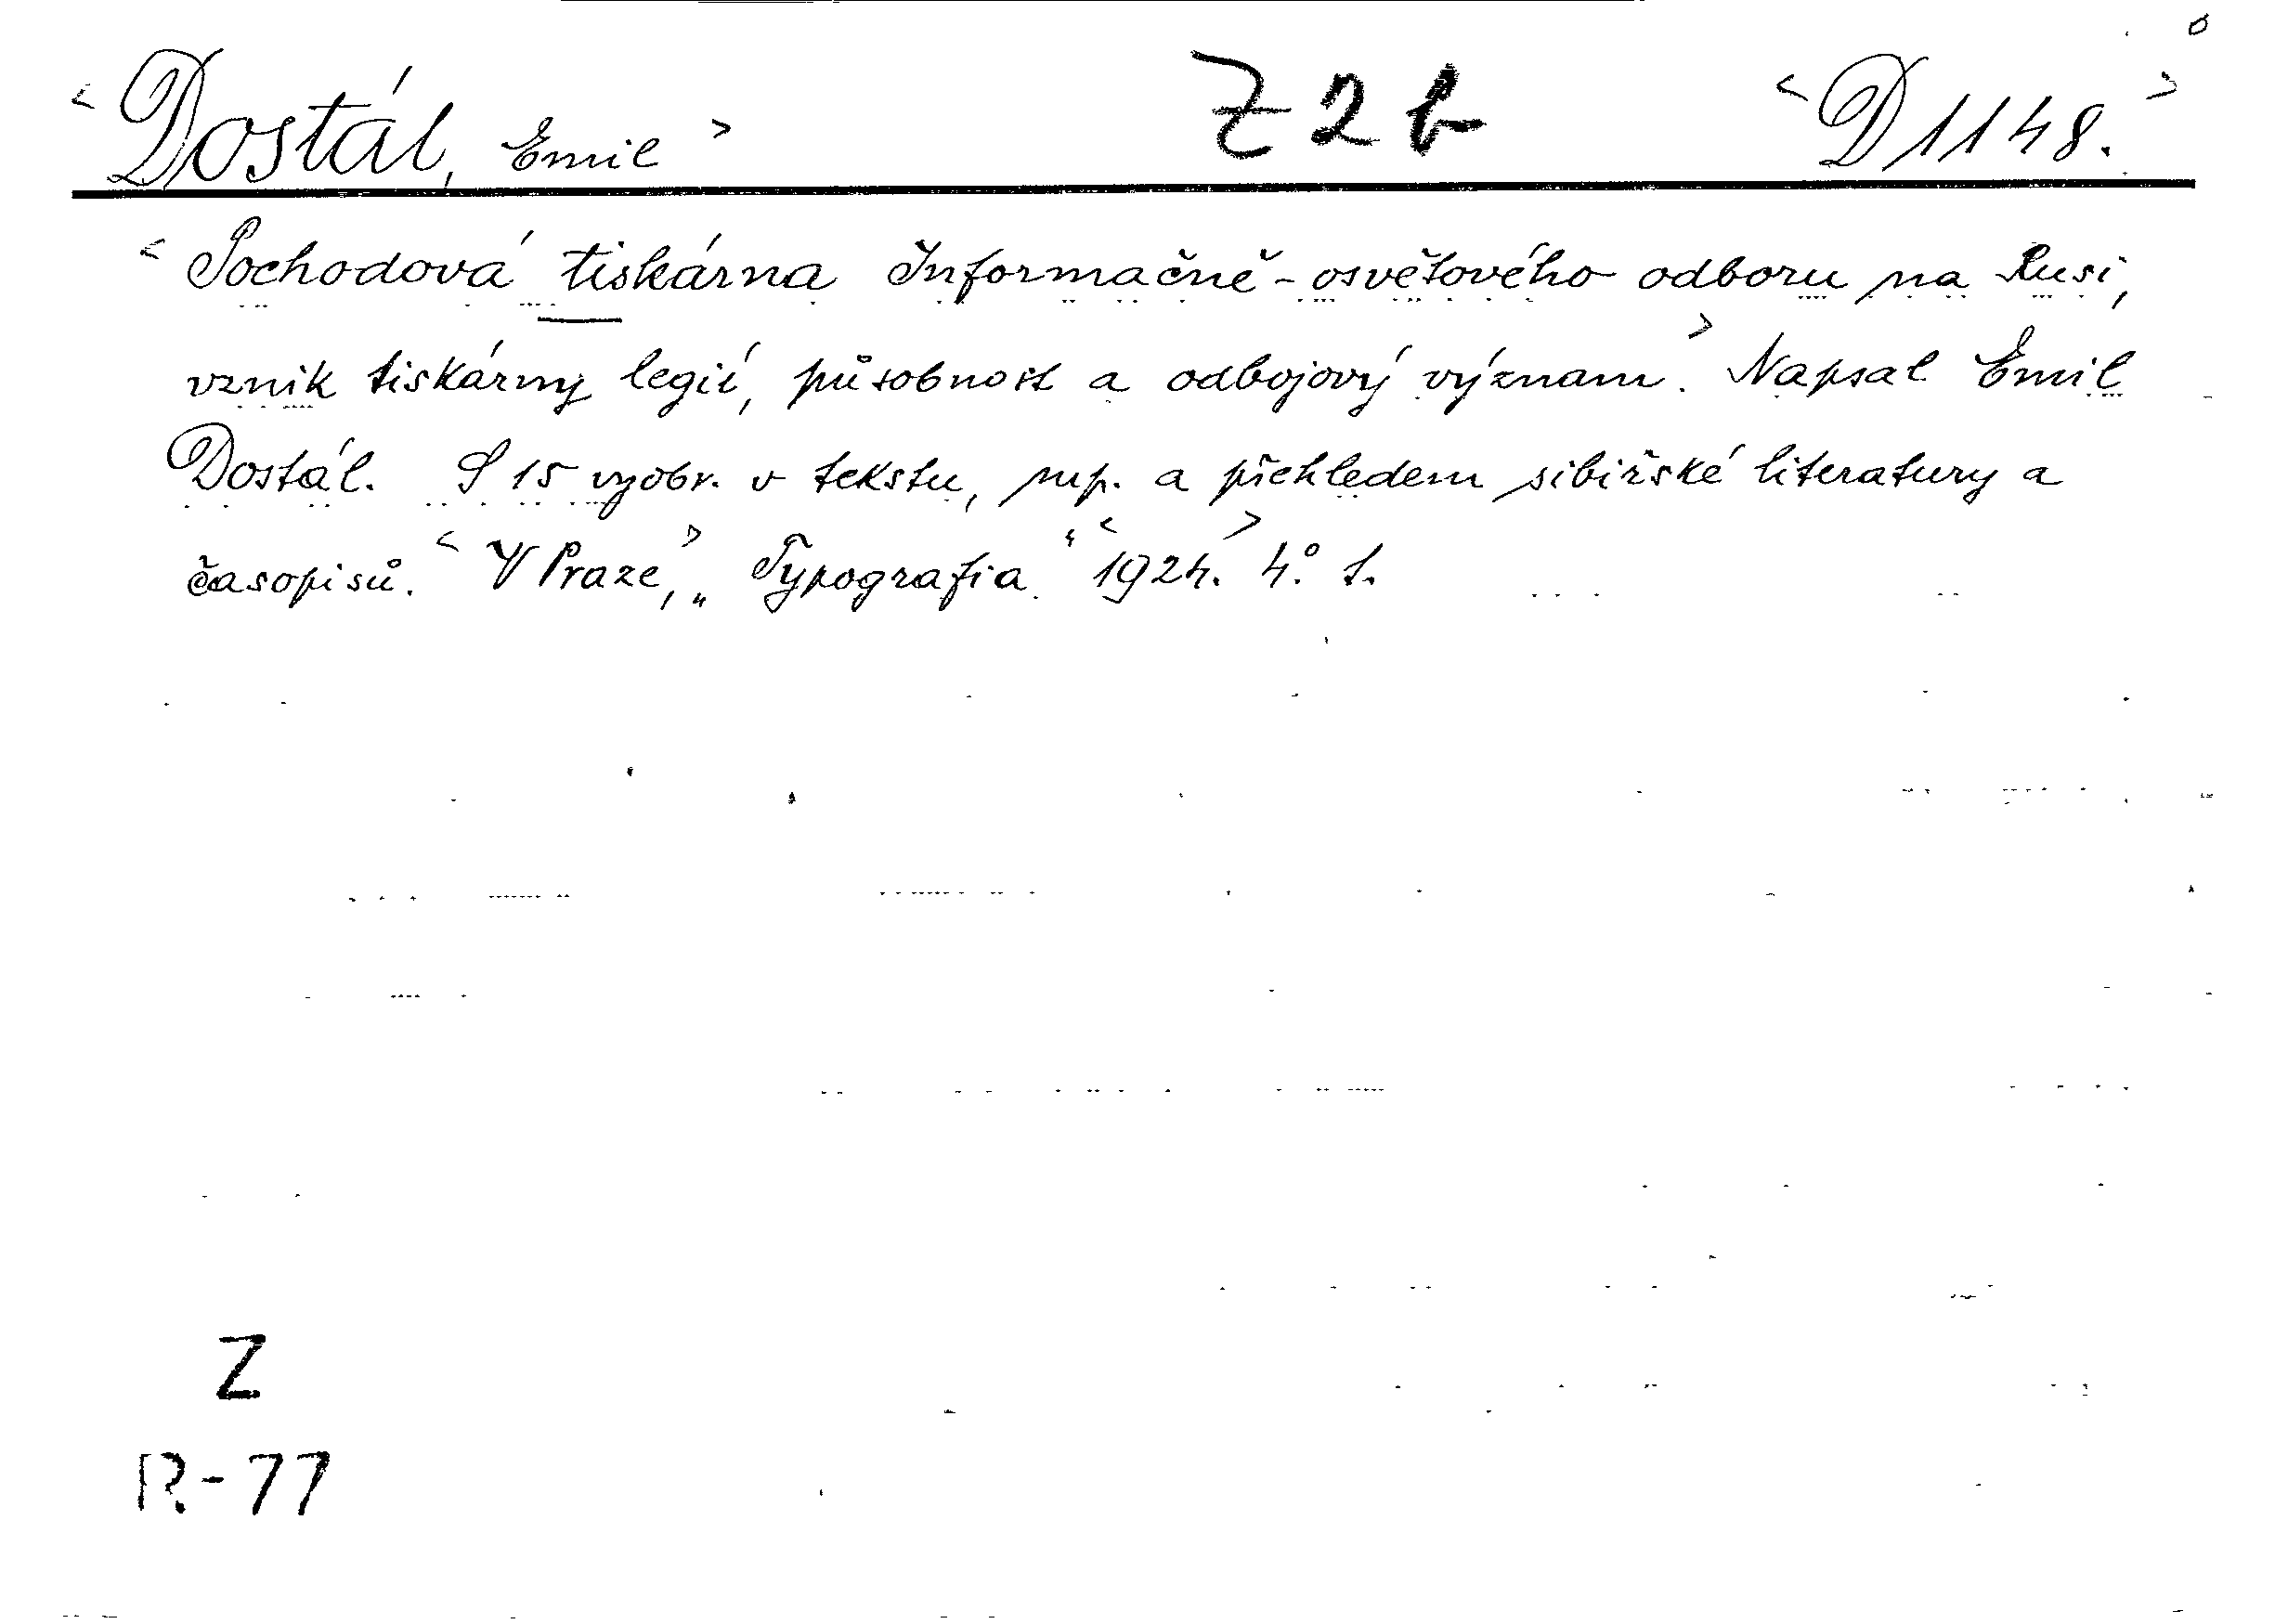 <Dostál, Emil> Z2b <D 1148.>
<Pochodová tiskárna Informačně-osvětového odboru na Rusi,
vznik tiskárny legií, působnost a odbojový význam.> Napsal Emil
Dostál. S 15 vyobr. v tekstu, a přehledem sibiřské literatury a
časopisů. <V Praze,> „Typografia“ <1924.> 4.° 1.
Z
R-77